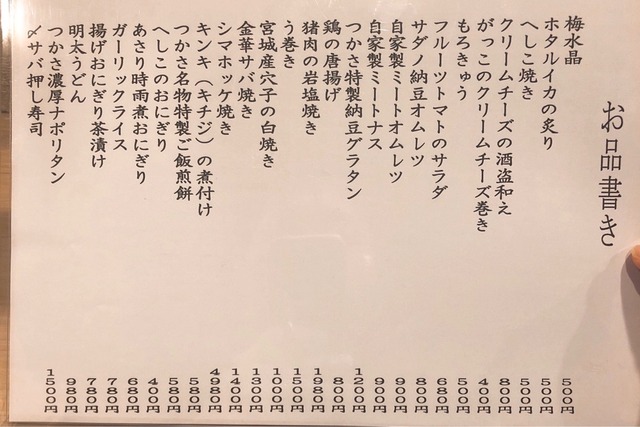 お品書き
梅水晶 500円
ホタルイカの炙り 500円
へしこ焼き 800円
クリームチーズの酒盗和え 800円
がっこのクリームチーズ巻き 400円
もろきゅう 500円
フルーツトマトのサラダ 680円
サダノ納豆オムレツ 900円
自家製ミートオムレツ 900円
自家製ミートナス 900円
つかさ特製納豆グラタン 1200円
鶏の唐揚げ 800円
猪肉の岩塩焼き 1980円
う巻き 1500円
宮城産穴子の白焼き 1000円
金華サバ焼き 1300円
シマホッケ焼き 1400円
キンキ（キチジ）の煮付け 4980円
つかさ名物特製ご飯煎餅 580円
へしこのおにぎり 580円
あさり時雨煮おにぎり 400円
ガーリックライス 680円
揚げおにぎり茶漬け 780円
明太うどん 780円
つかさ濃厚ナポリタン 980円
〆サバ押し寿司 1500円